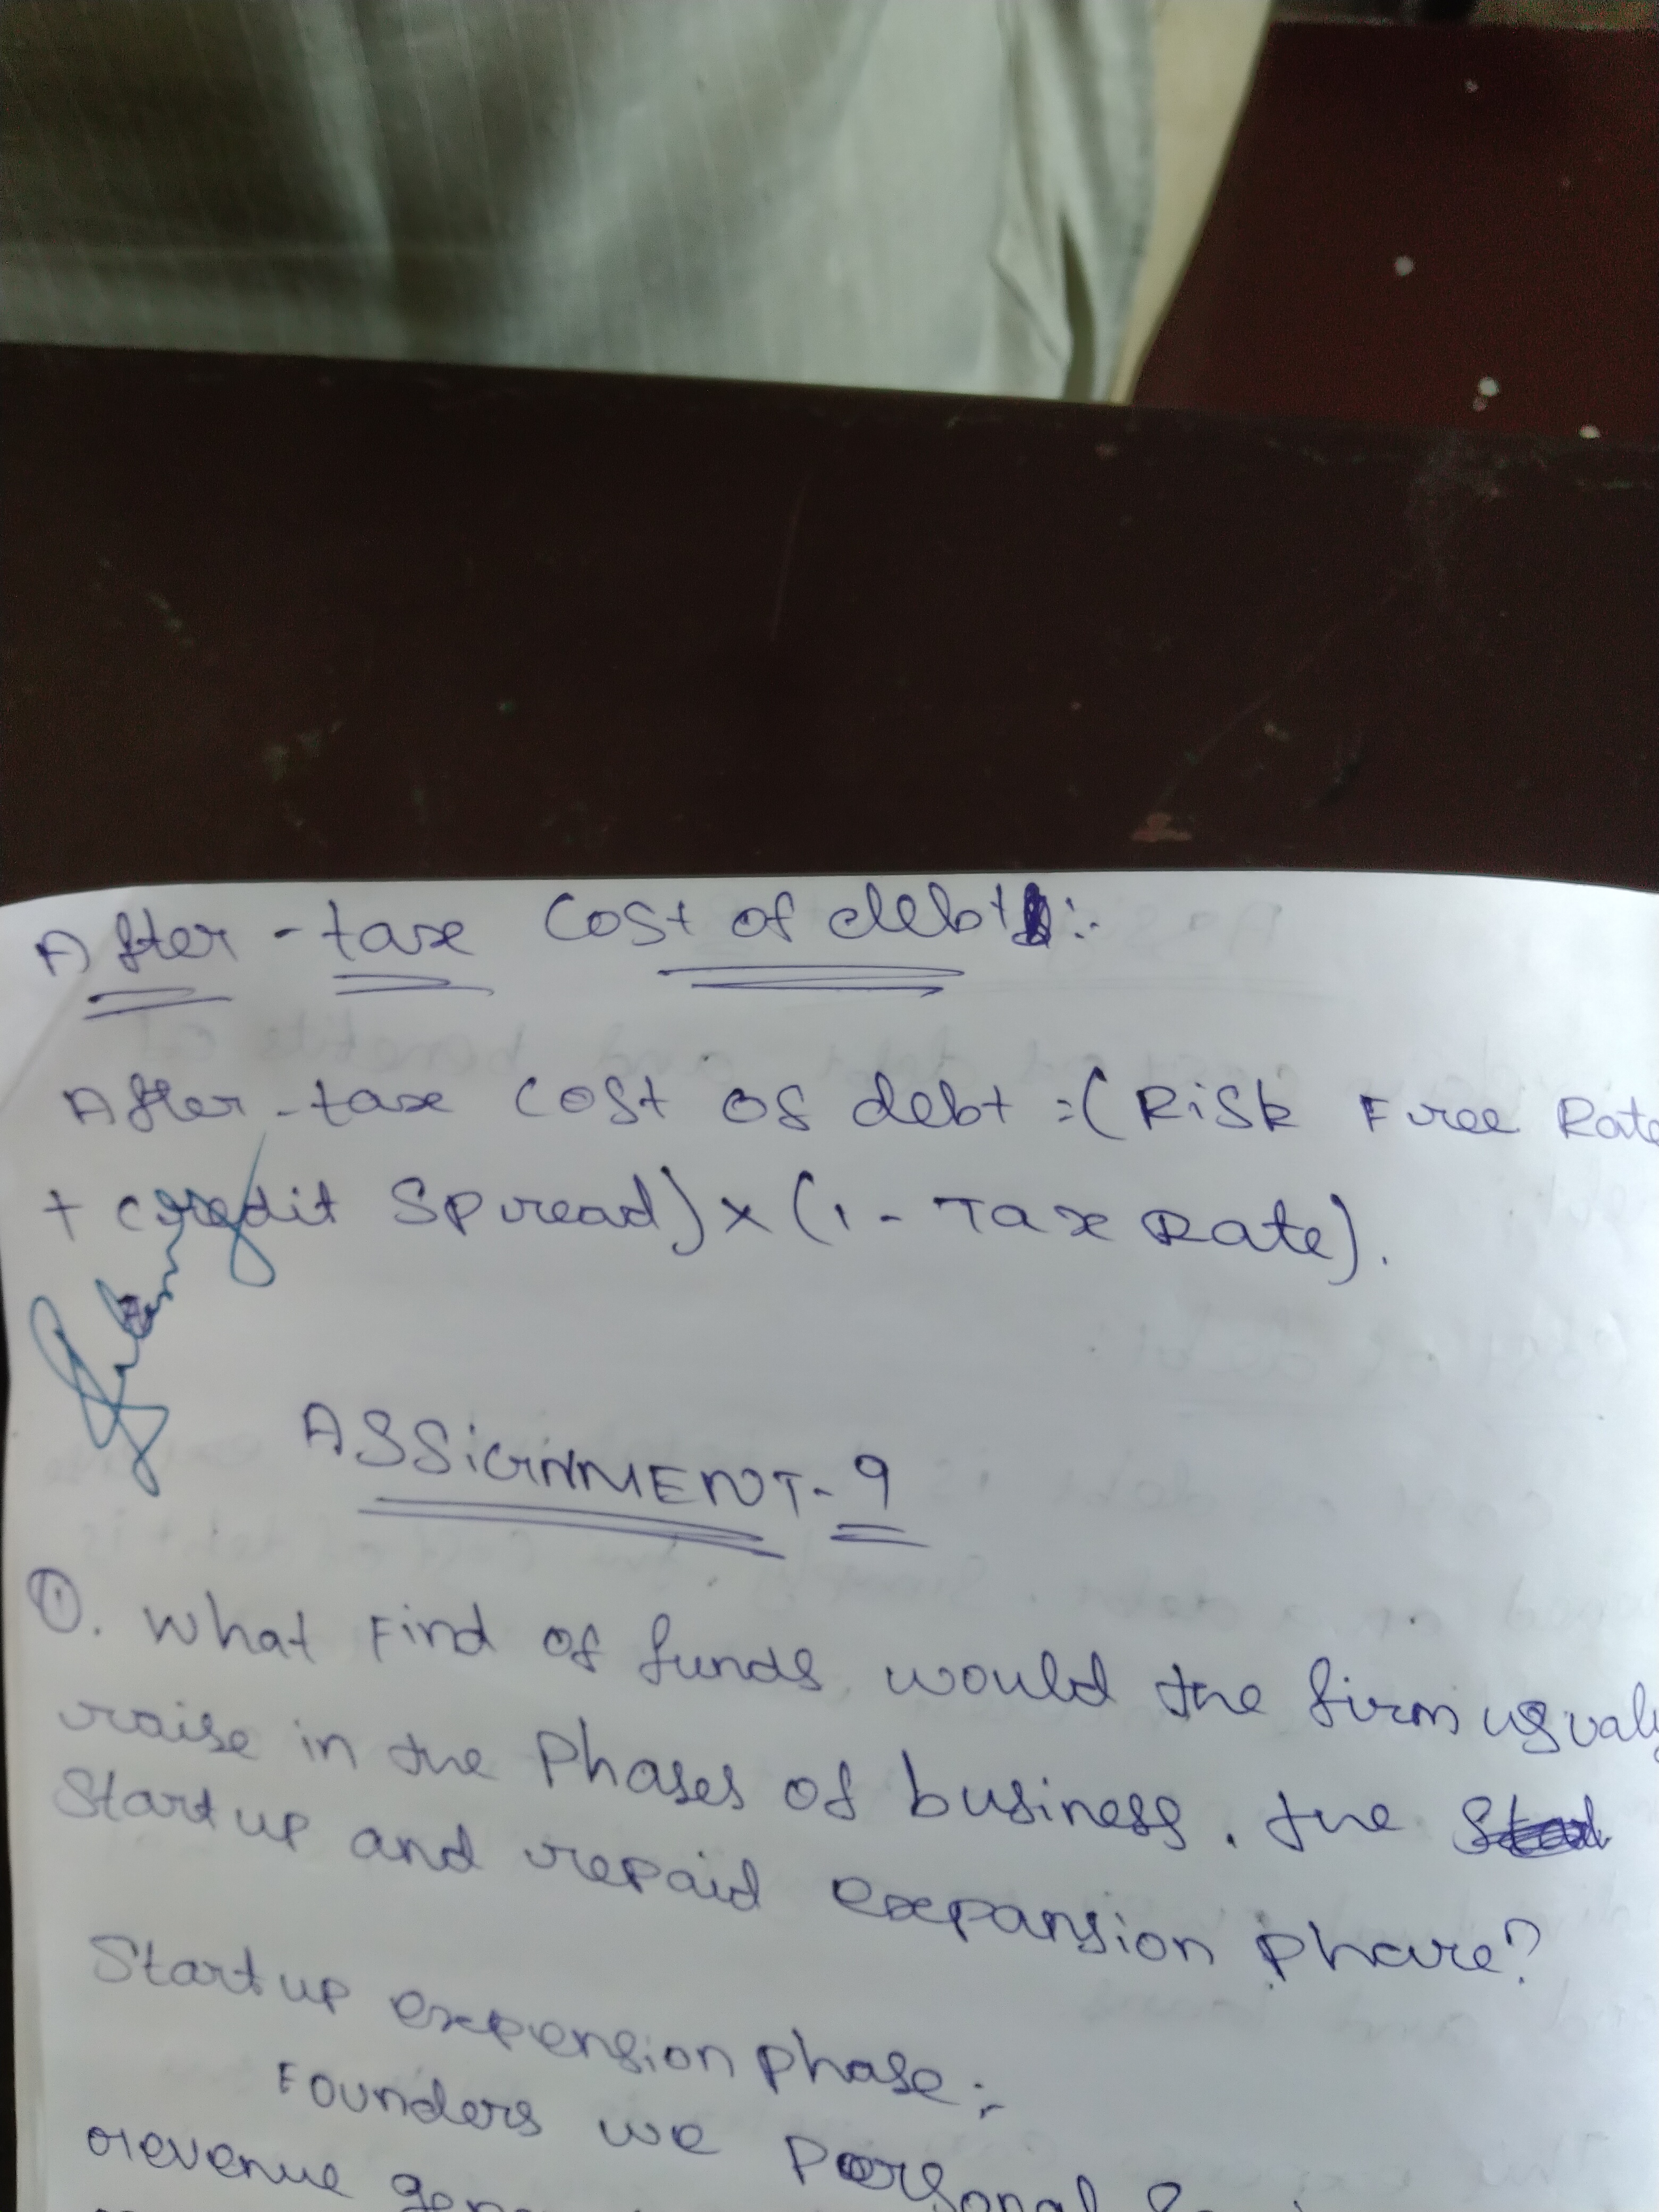 After-tax cost of debt :-
After-tax cost of debt = (Risk Free Rate
+ credit Spread) x (1 - Tax Rate).
ASSiGNMENT-9
①. What Find of funds would the firm usualy
raise in the Phases of business. the
Startup and repaid expansion phare?
Startup expension phase:-
Founders we Personal
revenue